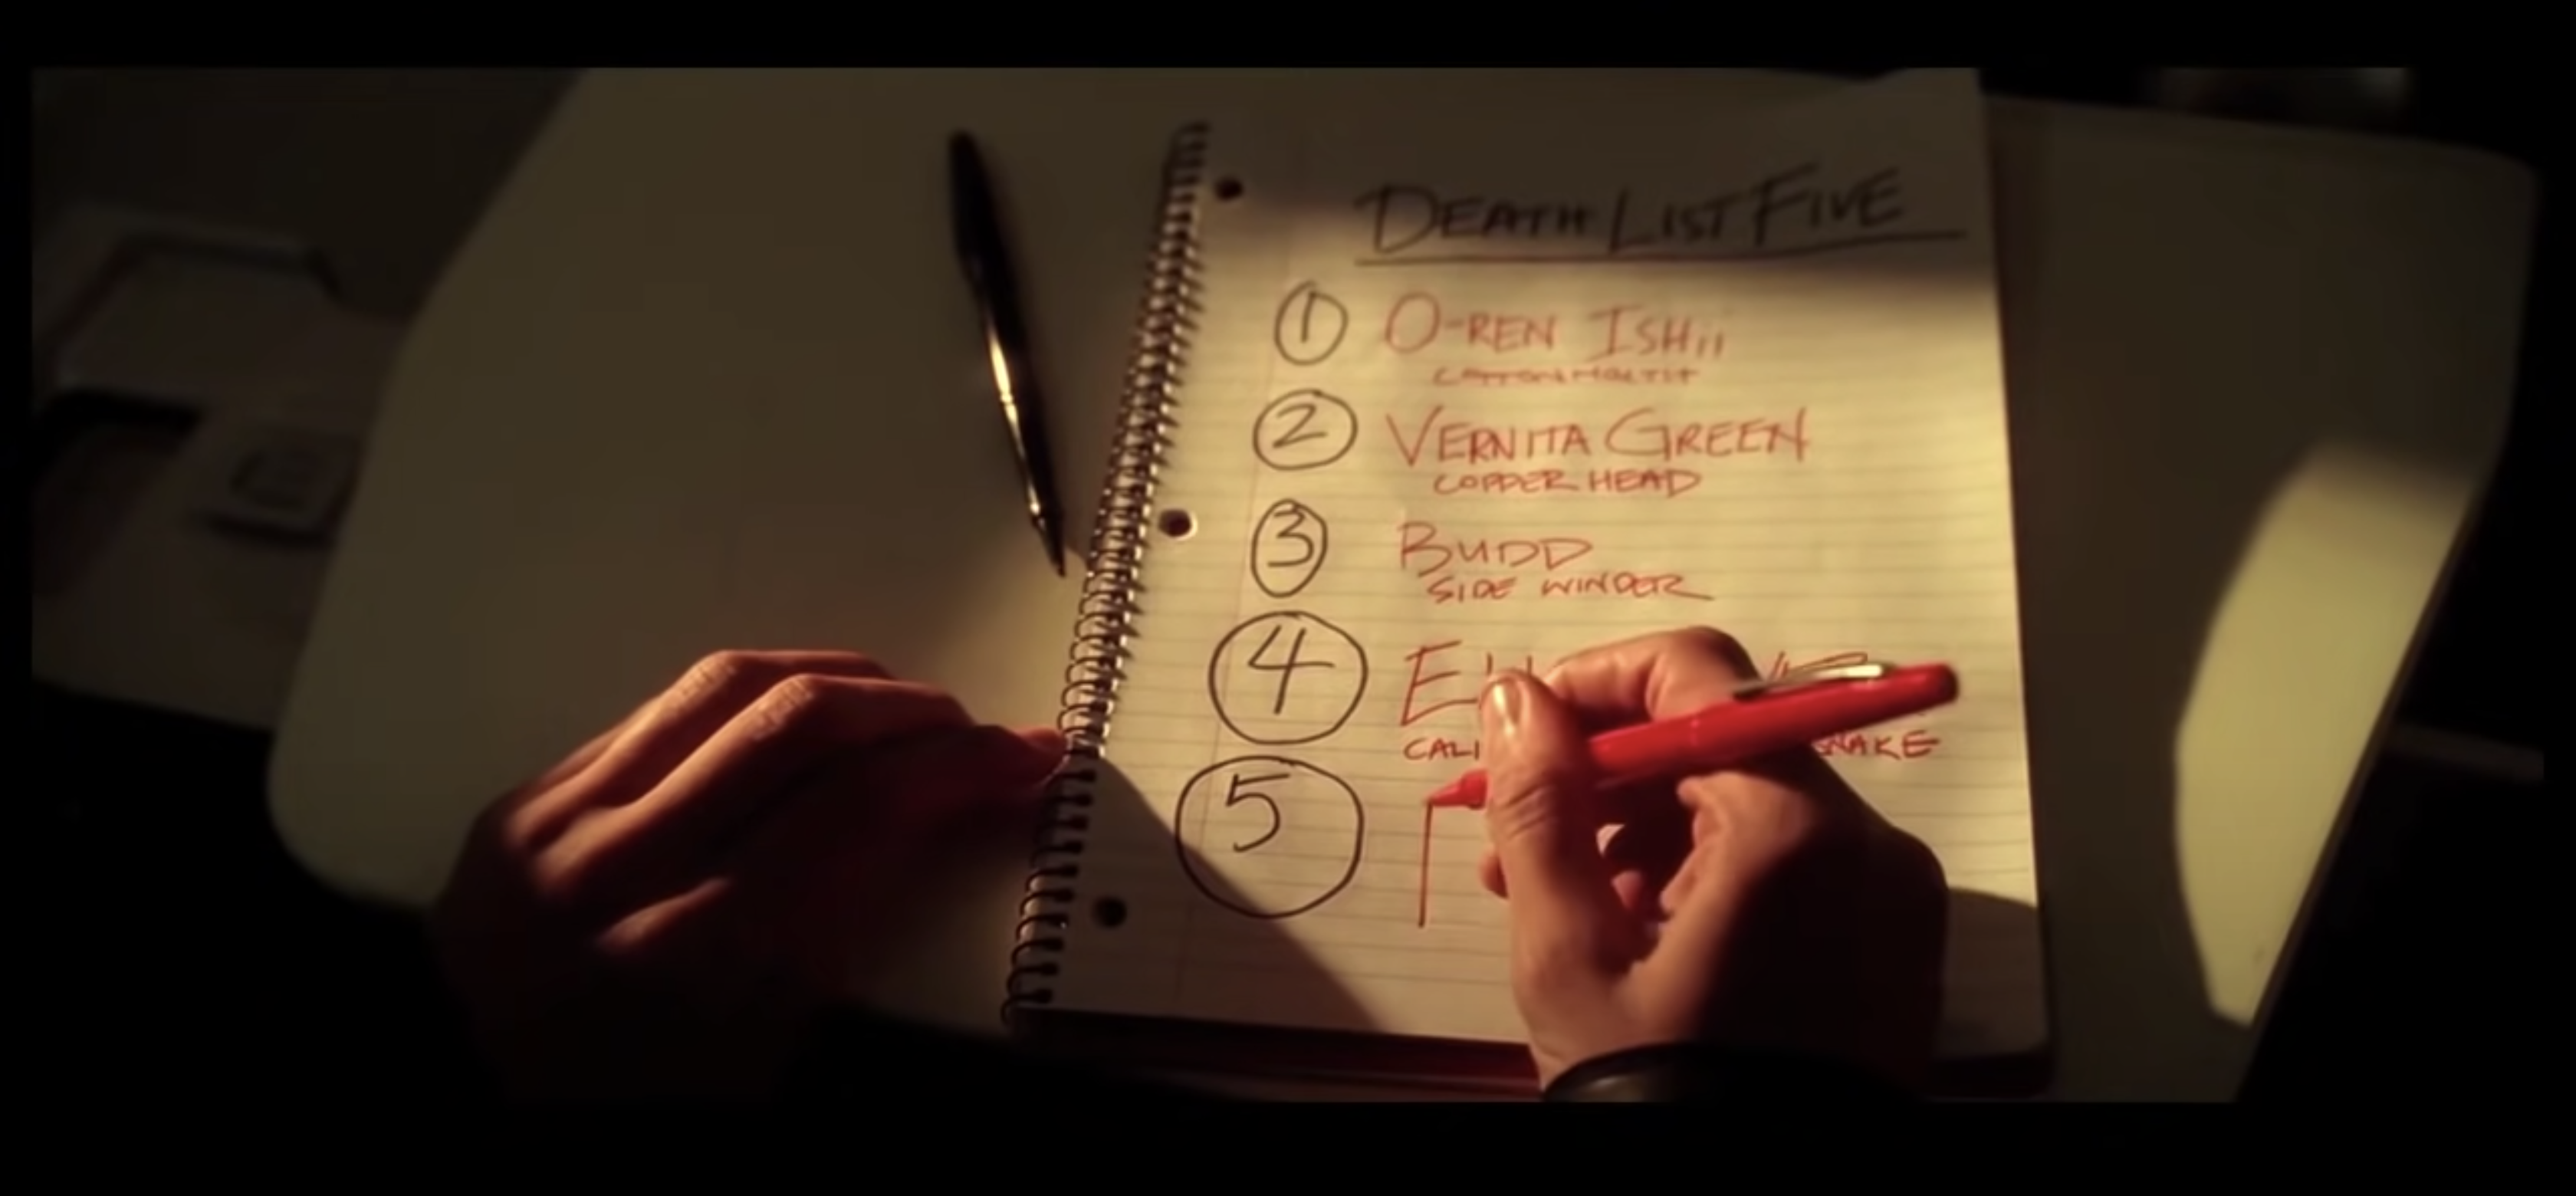 DEATH LIST FIVE
1 O-REN ISHii
COTTONMOUTH
2 VERNITA GREEN
COPPER HEAD
3 BUDD
SIDE WINDER
4
5